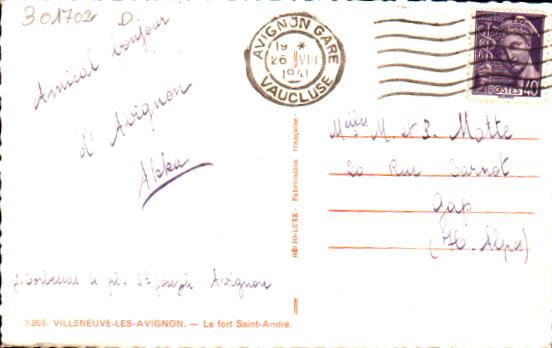 301702 D.
Amical bonjour
d'Avignon
Akka
AVIGNON GARE
19 *
26 VIII
1941
VAUCLUSE
40
POSTES
Melles M. et P. Matte
20 Rue Carnot
Gap
(Htes Alpes)
HÉLIO-LUXE - Fabrication française
pl. St Joseph Avignon
VILLENEUVE-LES-AVIGNON. — Le fort Saint-André.